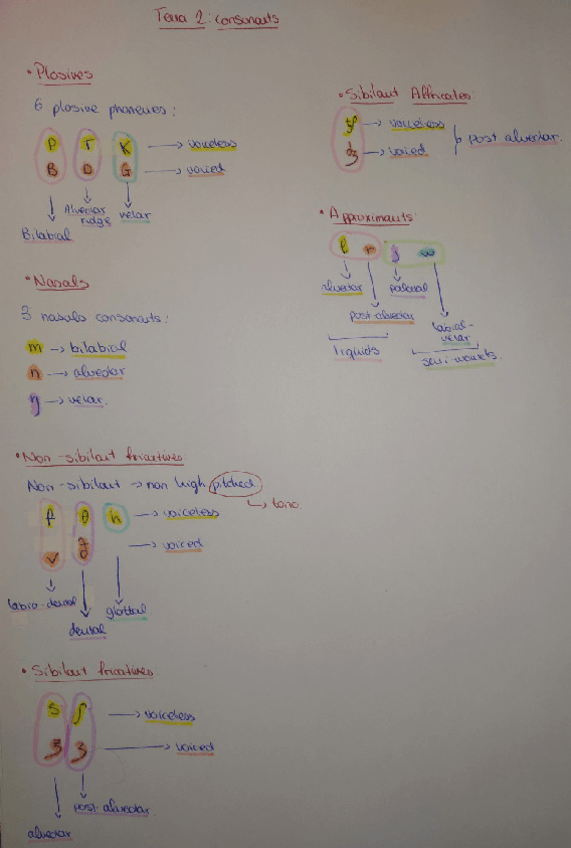 Tema 2: consonants
• Plosives
6 plosive phonemes:
P T K → voiceless
B D G → voiced
Bilabial
Alveolar ridge
velar
• Nasals
3 nasals consonants:
m → bilabial
n → alveolar
ŋ → velar.
• Non-sibilant fricatives
Non-sibilant → non high pitched
↳ tono
f θ h → voiceless
v ð → voiced
labio-dental
dental
glottal
• Sibilant fricatives
s ʃ → voiceless
ʒ → voiced
post-alveolar
alveolar
• Sibilant Affricates
tʃ → voiceless
dʒ → voiced
post alveolar.
• Approximants
l r j w
alveolar
palatal
post-alveolar
labial-velar
liquids
semi-vowels